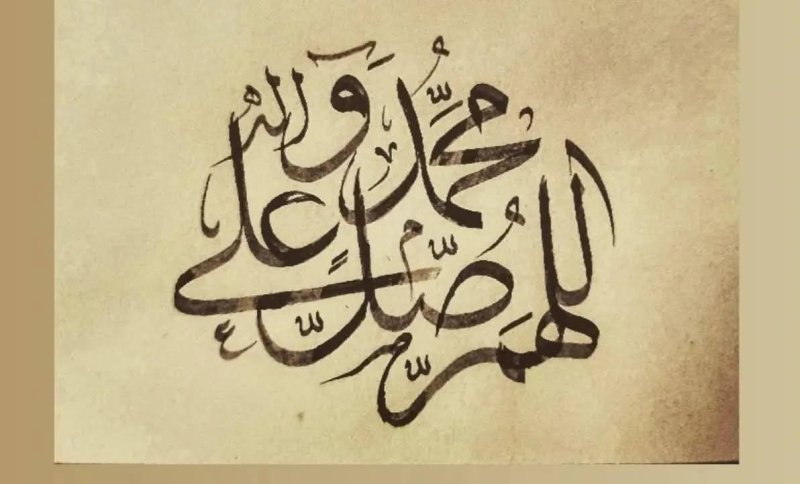 اللهم صل على
محمد وآله